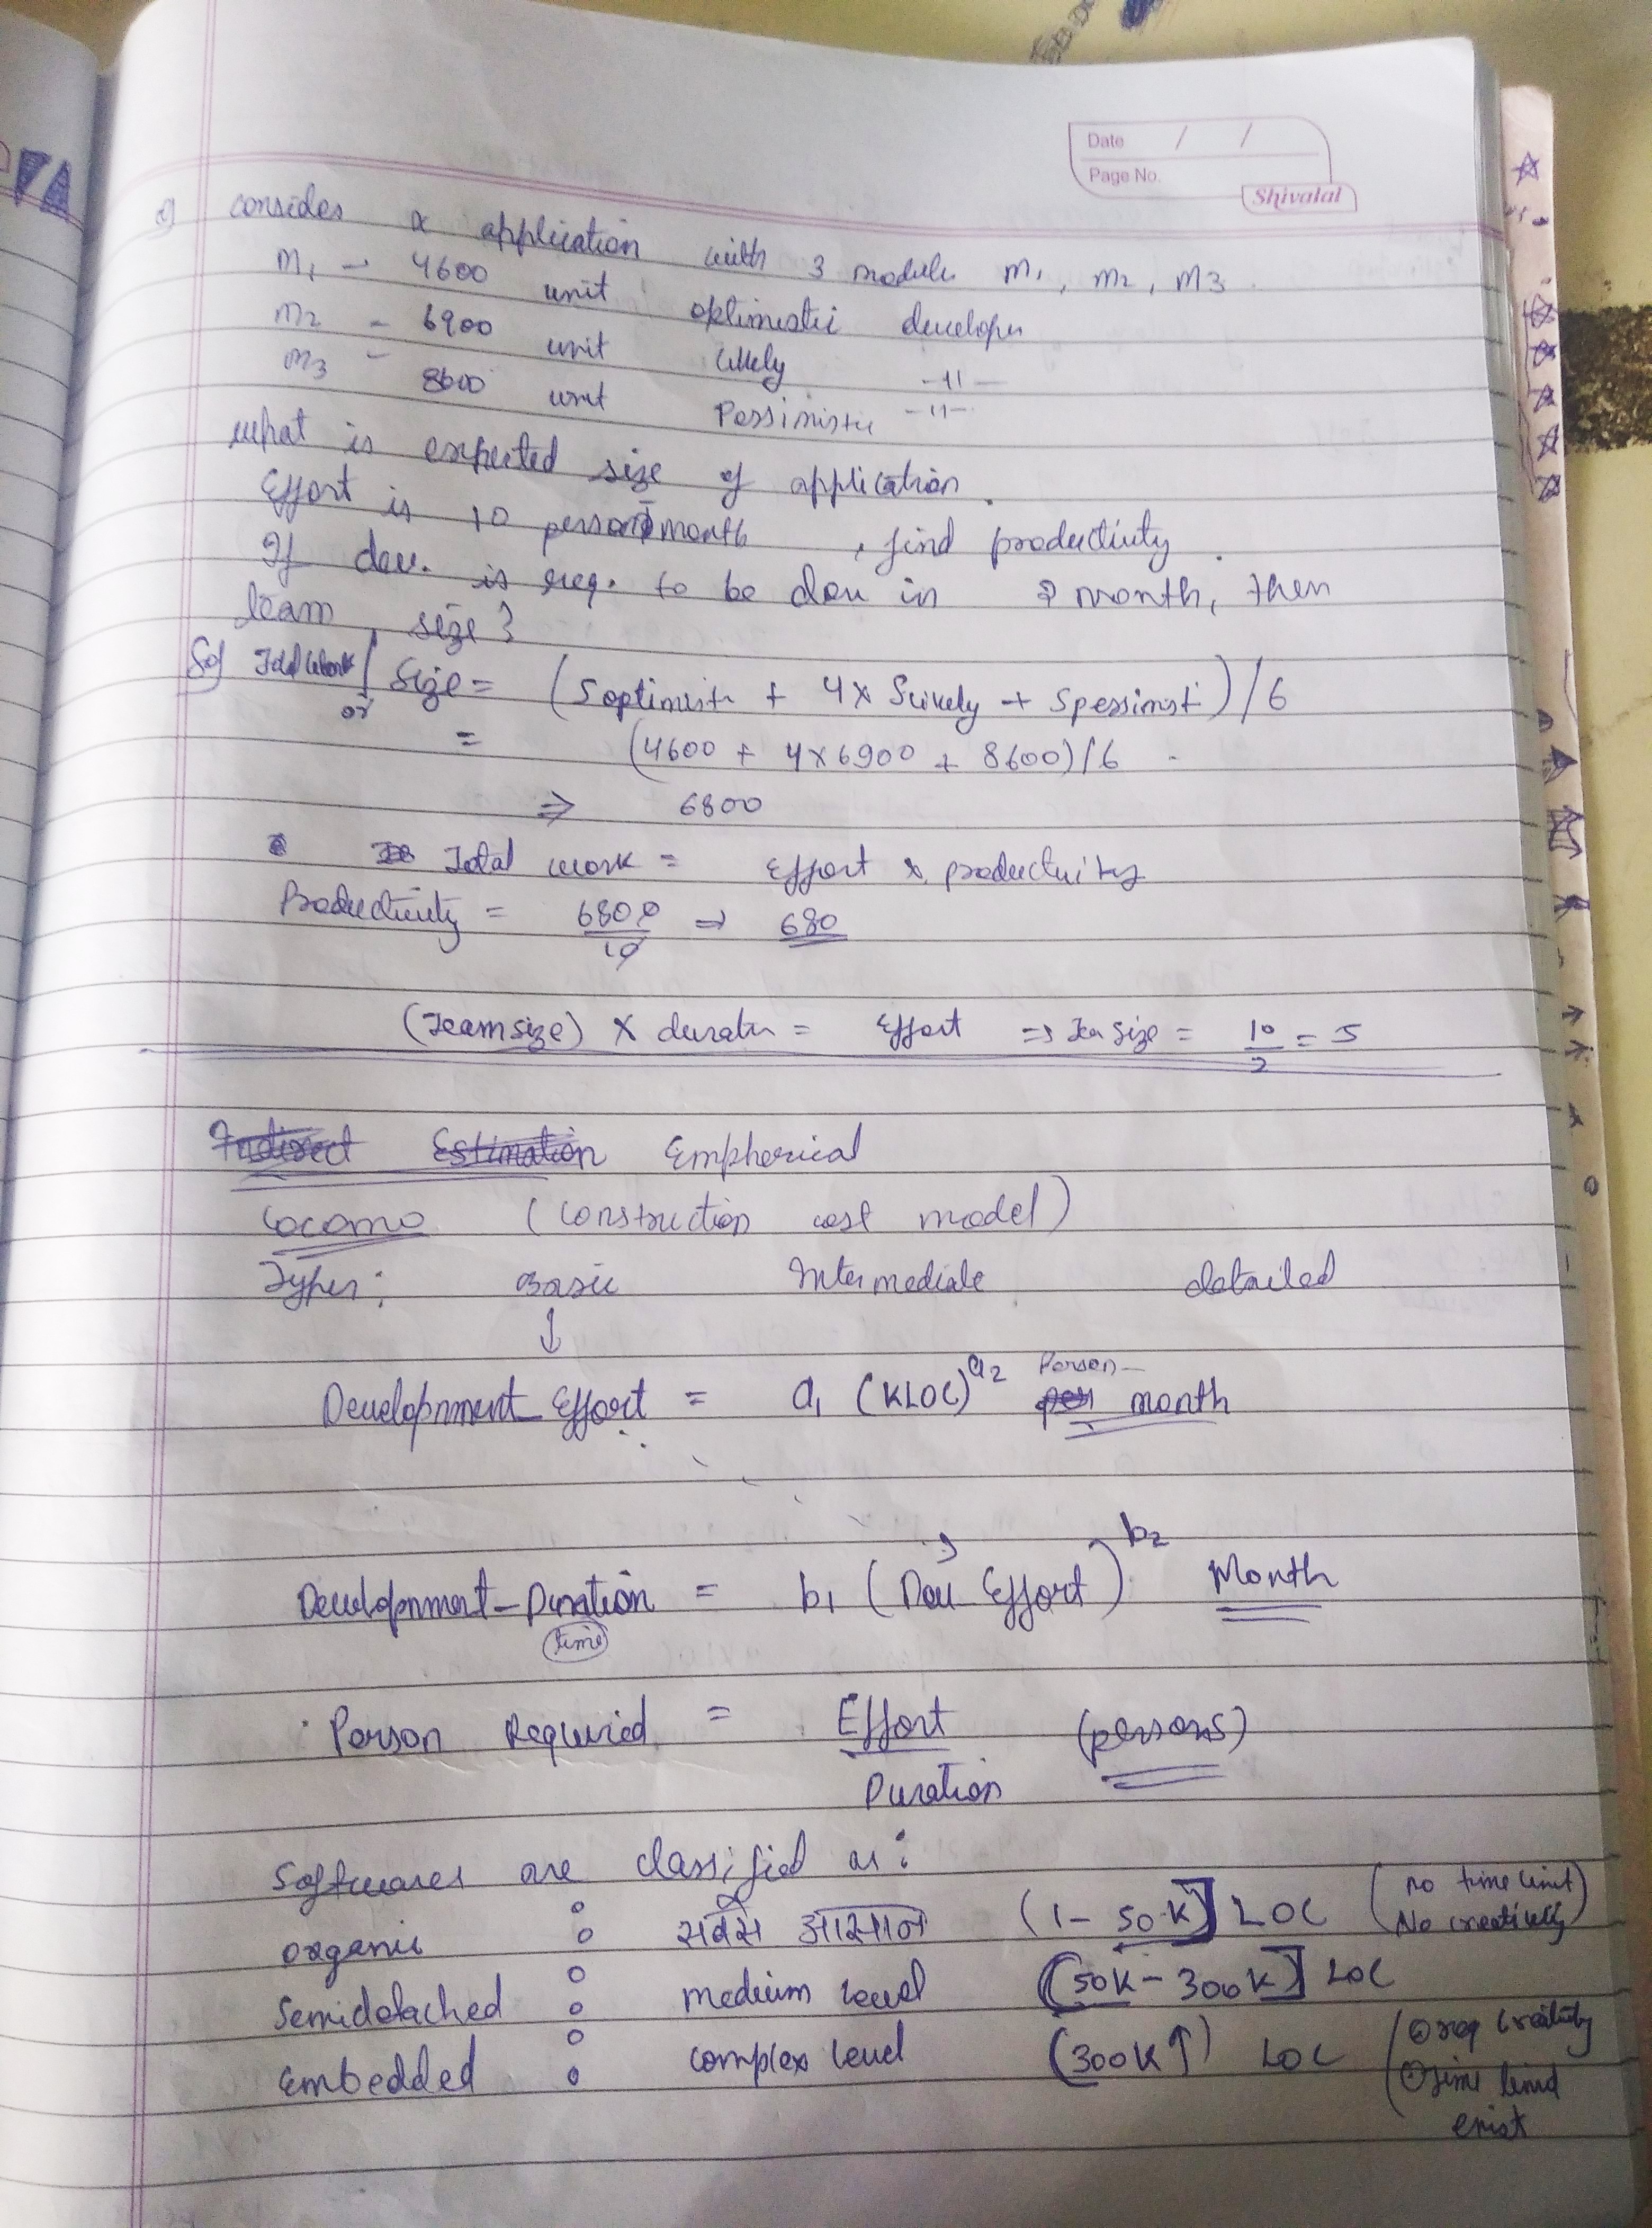 Date / /
Page No.
Shivalal
Q) consider a application with 3 module m1, m2, m3.
m1 – 4600 unit optimistic developer
m2 – 6900 unit likely –11–
m3 – 8600 unit Pessimistic –11–
what is expected size of application.
Effort is 10 person month, find productivity.
If dev. is req. to be done in 2 month, then
team size?
Sol Total work / or Size = (Soptimistic + 4x Slikely + Spessimist)/6
= (4600 + 4x6900 + 8600)/6
⇒ 6800
Total work = Effort x productivity
Productivity = 6800/10 ⇒ 680
(Team size) x duratn = Effort ⇒ Team size = 10/2 = 5
Indirect Estimation Empherical
COCOMO (construction cost model)
Types: Basic Intermediate detailed
↓
Development Effort = a1 (KLOC)^a2 Person- month
Development-Duration = b1 (Dev Effort)^b2 Month
(time)
Person Required = Effort/Duration (persons)
Softwares are classified as:
organic : सबसे आसान (1- 50K] LOC (No time limit No creativity)
Semidetached : medium level (50K – 300K] LOC
Embedded : complex level (300K↑) LOC (req creativity time limit exist